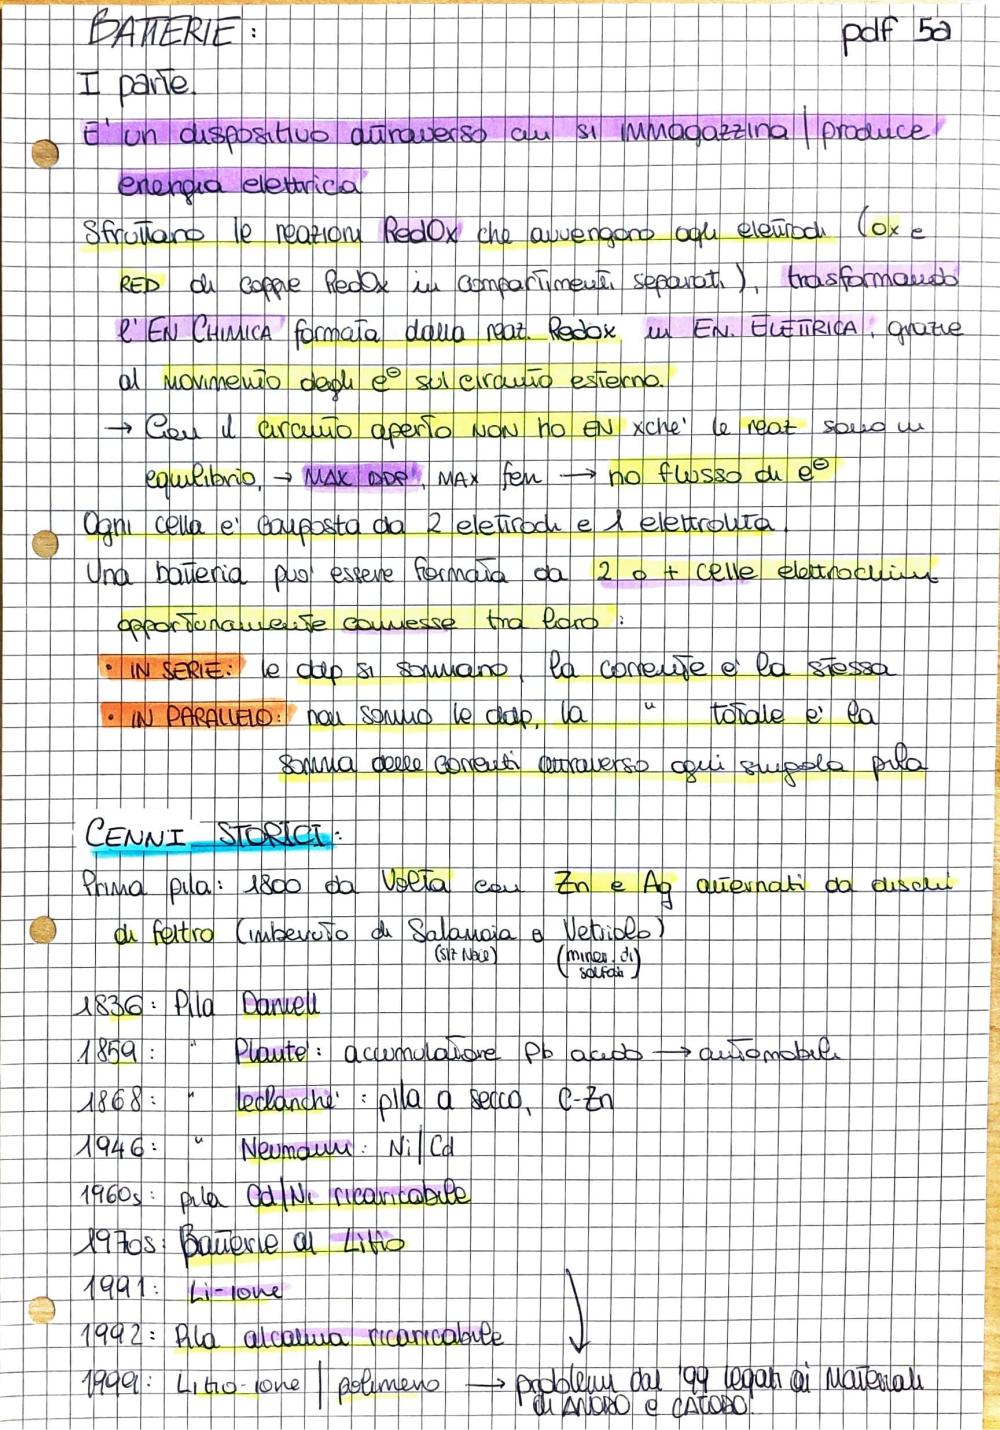 BATTERIE: pdf 5a
I parte.
E' un dispositivo attraverso cui si immagazzina | produce
energia elettrica
Sfruttano le reazioni RedOx che avvengono agli elettrodi (ox e
RED di coppie RedOx in compartimenti separati), trasformando
l'EN CHIMICA formata dalla reaz. Redox in EN. ELETTRICA, grazie
al movimento degli e⊖ sul circuito esterno.
→ Con il circuito aperto NON ho EN xche' le reaz sono in
equilibrio, → MAX DDP, MAX fem → no flusso di e⊖
Ogni cella e' composta da 2 elettrodi e 1 elettrolita.
Una batteria puo' essere formata da 2 o + celle elettrochim
opportunamente connesse tra loro:
• IN SERIE: le ddp si sommano, la corrente e' la stessa
• IN PARALLELO: non sommo le ddp, la " totale e' la
somma delle correnti attraverso ogni singola pila
CENNI STORICI:
Prima pila: 1800 da Volta con Zn e Ag alternati da dischi
di feltro (imbevuto di Salamoia o Vetriolo)
(slz NaCl) (miner. di solfati)
1836: Pila Daniell
1859: " Plante': accumulatore Pb acido → automobili
1868: " leclanche': pila a secco, C-Zn
1946: " Neumann: Ni/Cd
1960s: pila Cd/Ni ricaricabile
1970s: Batterie al Litio
1991: Li-ione
1992: Pila alcalina ricaricabile
1999: Litio-ione | polimero → problemi dal '99 legati ai Materiali
di ANODO e CATODO!